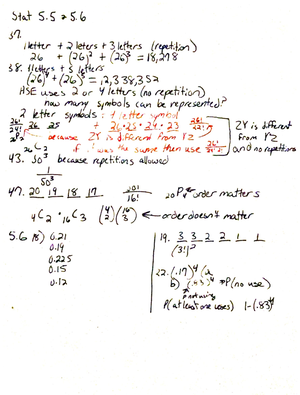 Stat 5.5 & 5.6
37.
1 letter + 2 letters + 3 letters (repetition)
26 + (26)² + (26)³ = 18,278
38. 4 letters + 5 letters
(26)⁴ + (26)⁵ = 12,338,352
NSE uses 2 or 4 letters (no repetition)
how many symbols can be represented?
2 letter symbols + 4 letter symbol
26!/24! 26 · 25 + 26·25·24·23 26!/22!
26P2 because ZY is different from YZ
26C2 if it was the same then use
ZY is different from YZ and no repetitions
43. 50³ because repetitions allowed
1/50³
47. 20 19 18 17 20!/16! 20P4 order matters
4C2 · 16C3 (4 2)(16 3) ← order doesn't matter
5.6 18) 0.21
0.14
0.225
0.15
0.12
19. 3 3 2 2 1 1
(3!)²
22. (.17)⁴ (a
b) (.83)⁴ → P(no use)
P not using
P(at least one uses) 1-(.83)⁴